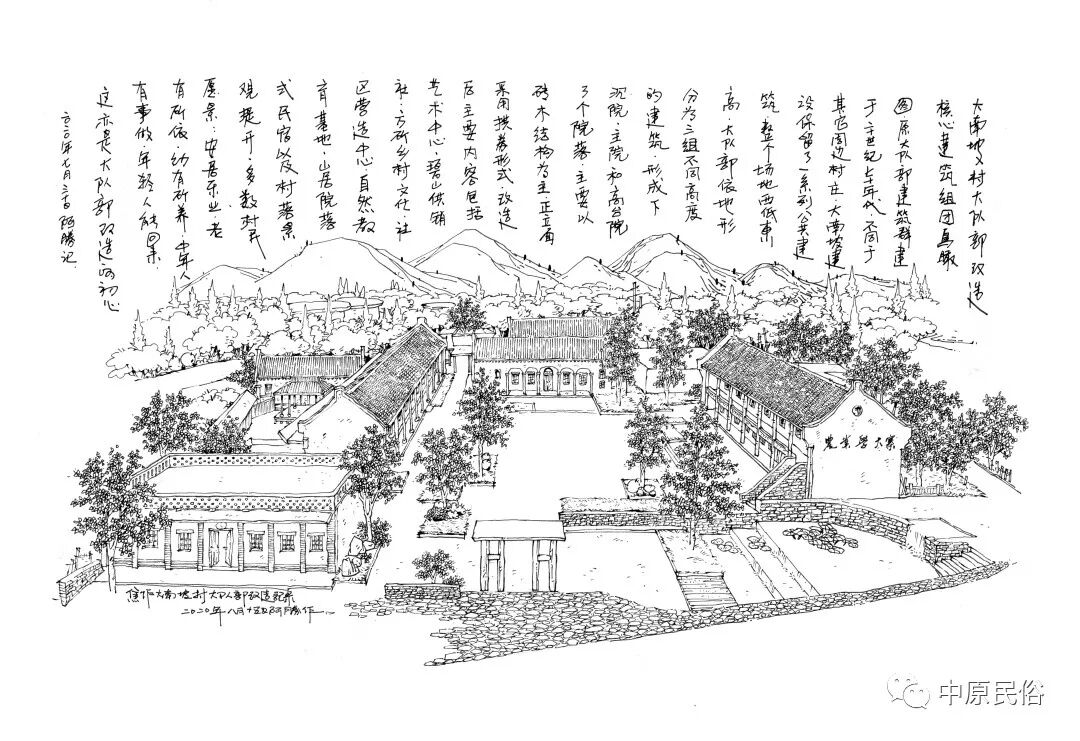 大南坡村大队部改造
核心建筑组团鸟瞰
图原大队部建筑群建
于上世纪七年代,不同于
其它周边村庄,大南坡建
设保留了一系列公共建
筑,整个场地西低东
高,大队部依地形
分为三组不同高度
的建筑,形成下
沉院、主院和高台院
3个院落,主要以
砖木结构为主正立面
采用拱券形式,改造
后主要内容包括
艺术中心,碧山供销
社,方所乡村文化,社
区营造中心,自然教
育基地,山居院落
式民宿以及村落景
观提升,多数村民
愿景:安居乐业,老
有所依,幼有所养,中年人
有事做,年轻人能回来.
这亦是大队部改造的初心
二〇二〇年七月三十日 阿腾记.
农业学大寨
焦作大南坡村大队部改造记录
2020年八月十五日阿腾作
中原民俗